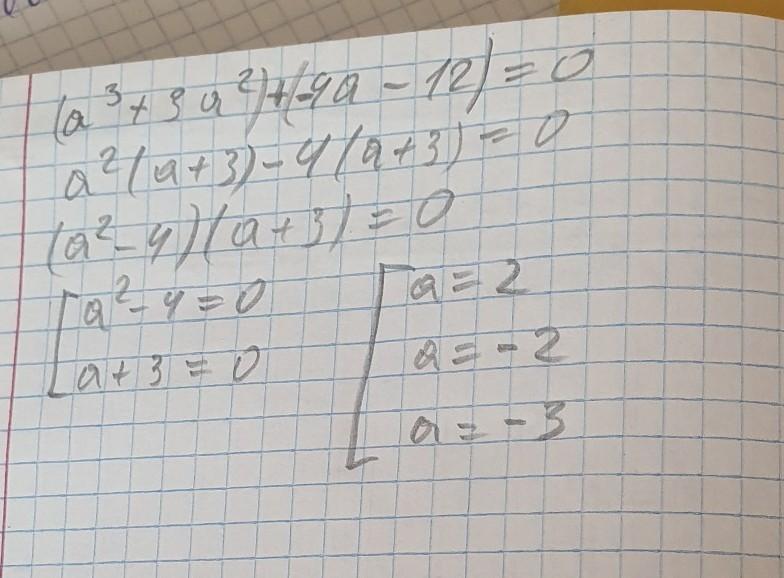 (a³ + 3a²) + (-4a - 12) = 0
a²(a + 3) - 4(a + 3) = 0
(a² - 4)(a + 3) = 0
[ a² - 4 = 0
a + 3 = 0
[ a = 2
a = -2
a = -3